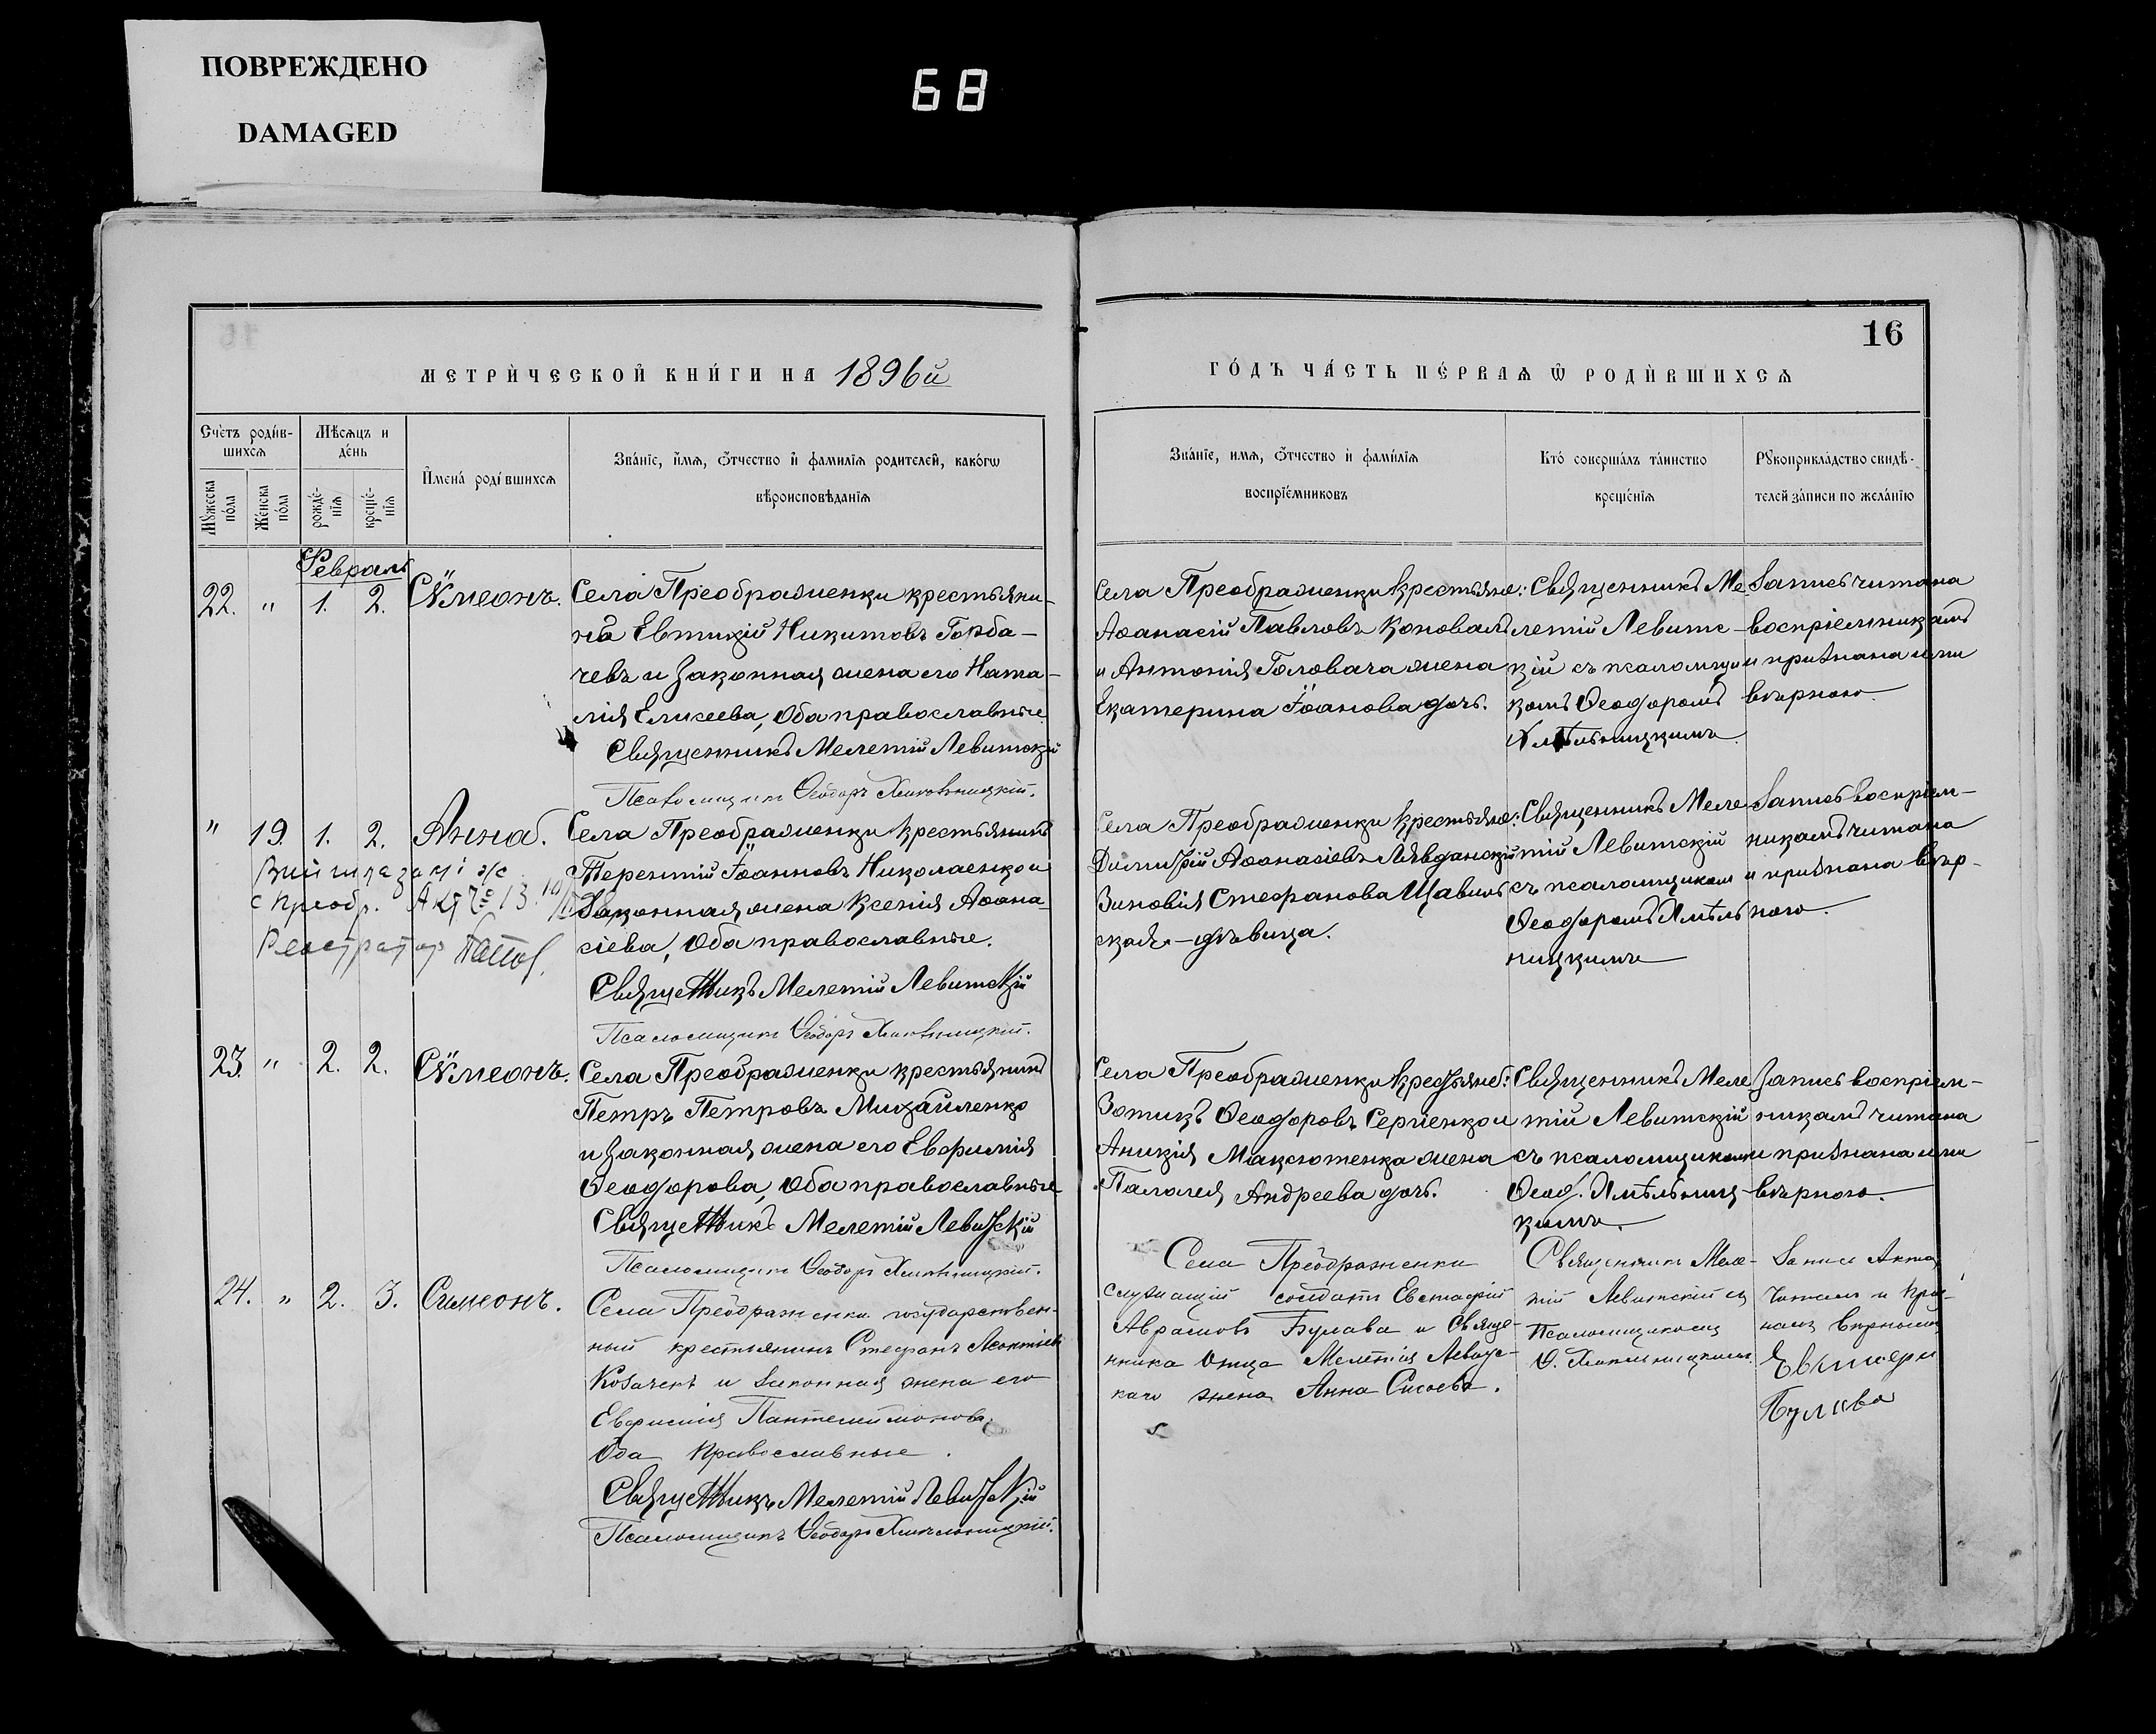 ПОВРЕЖДЕНО
DAMAGED
68
16
МЕТРИ́ЧЕСКОЙ КНИ́ГИ НА 1896й
ГО́ДЪ ЧА́СТЬ ПЕ́РВАѦ Ѿ РОДИ́ВШИХСѦ
Счетъ роди́в-
шихсѧ
Мѣ́сѧцъ и
де́нь
Мꙋжеска по́ла
Же́нска по́ла
рожде́-
нїѧ
креще́-
нїѧ
Имена́ роди́вшихсѧ
Зва́нїе, и́мѧ, ѻ́тчество и фамилїѧ родителей, како́гѡ
вѣроисповѣ́данїѧ
Зва́нїе, имѧ, ѻ́тчество и фами́лїѧ
воспрїе́мниковъ
Кто́ соверша́лъ та́инство
креще́нїѧ
Рꙋкоприкла́дство свидѣ́-
телей за́писи по жела́нїю
Февраль
22. " 1. 2. Сѵмеонъ.
Села Преображенки крестьяни-
нъ Евтихій Никитовъ Горба-
чевъ и законная жена его Ната-
лія Елисеева, оба православные
Священникъ Мелетій Левитскій
Псаломщикъ Ѳеодоръ Хмѣльницкій.
Села Преображенки крестьяне:
Аѳанасій Павловъ Коновалъ
и Антонія Головача жена
Екатерина Іоанова дочь.
Священникъ Ме-
летій Левитс-
кій съ псаломщи-
комъ Ѳеодоромъ
Хмѣльницкимъ.
Запись читана
воспріемникамъ
и признана ими
вѣрною
" 19. 1. 2. Анна.
с Преобр. Акт № 13
Села Преображенки крестьянинъ
Терентій Іоанновъ Николаенко и
Законная жена Ксенія Аѳана-
сіева, оба православные.
Священникъ Мелетій Левитскій
Псаломщикъ Ѳеодоръ Хмѣльницкій.
Села Преображенки крестьяне:
Димитрій Аѳанасіевъ Лявданскій
Зиновія Стефанова Щавин-
ская - дѣвица.
Священникъ Меле-
тій Левитскій
съ псаломщикомъ
Ѳеодоромъ Хмѣль-
ницкимъ
Запись воспріем-
никамъ читана
и признана вѣр-
ною.
23. " 2. 2. Сѵмеонъ.
Села Преображенки крестьянинъ
Петръ Петровъ Михайленко
и законная жена его Евфимія
Ѳеодорова, оба православные
Священникъ Мелетій Левитскій
Псаломщикъ Ѳеодоръ Хмѣльницкій.
Села Преображенки крестьяне:
Зотикъ Ѳеодоровъ Сергіенко и
Аникія Максютенка жена
Палагея Андреева дочь.
Священникъ Меле-
тій Левитскій
съ псаломщикомъ
Ѳеод. Хмѣльниц-
кимъ.
Запись воспріем-
никамъ читана
и признана ими
вѣрною.
24. " 2. 3. Симеонъ.
Села Преображенки государствен-
ный крестьянинъ Стефанъ Леонтіевъ
Козачекъ и законная жена его
Евфимія Пантелеймонова.
Оба православные.
Священникъ Мелетій Левитскій
Псаломщикъ Ѳеодоръ Хмѣльницкій.
Села Преображенки
служащій солдатъ Евстафій
Аврамовъ Булава и Свяще-
нника Отца Мелетія Левитс-
каго жена Анна Сисоева.
Священникъ Меле-
тій Левитскій съ
Псаломщикомъ
Ѳ. Хмѣльницкимъ
Запись Акта
Читалъ и приз-
налъ вѣрнымъ
Булава